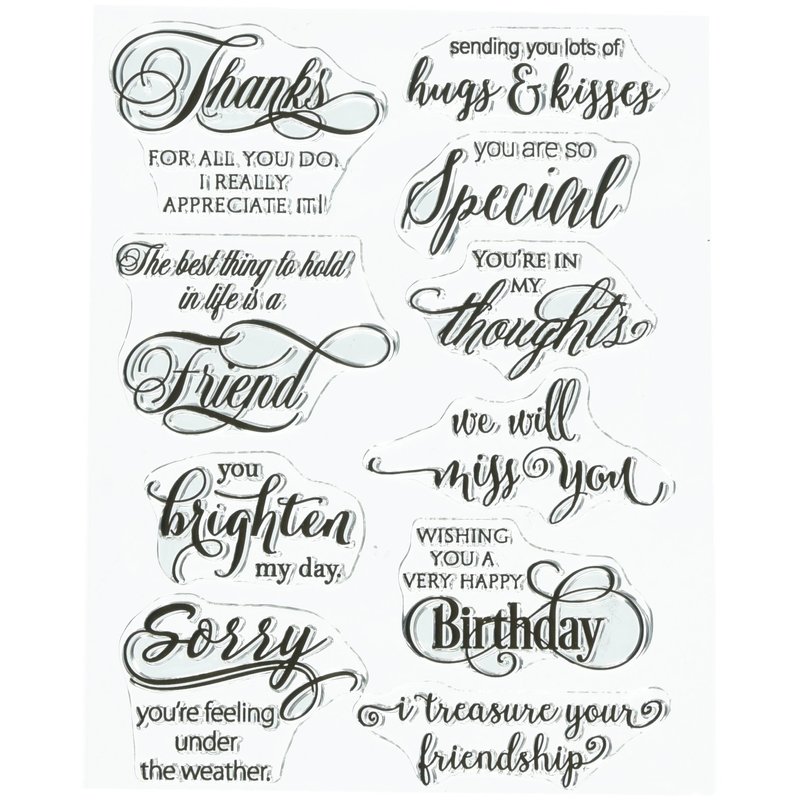 Thanks
FOR ALL YOU DO,
I REALLY
APPRECIATE IT!
The best thing to hold
in life is a
Friend
you
brighten
my day.
Sorry
you're feeling
under
the weather.
sending you lots of
hugs & kisses
you are so
Special
YOU'RE IN
MY
thoughts
we will
miss you
WISHING
YOU A
VERY HAPPY
Birthday
i treasure your
friendship